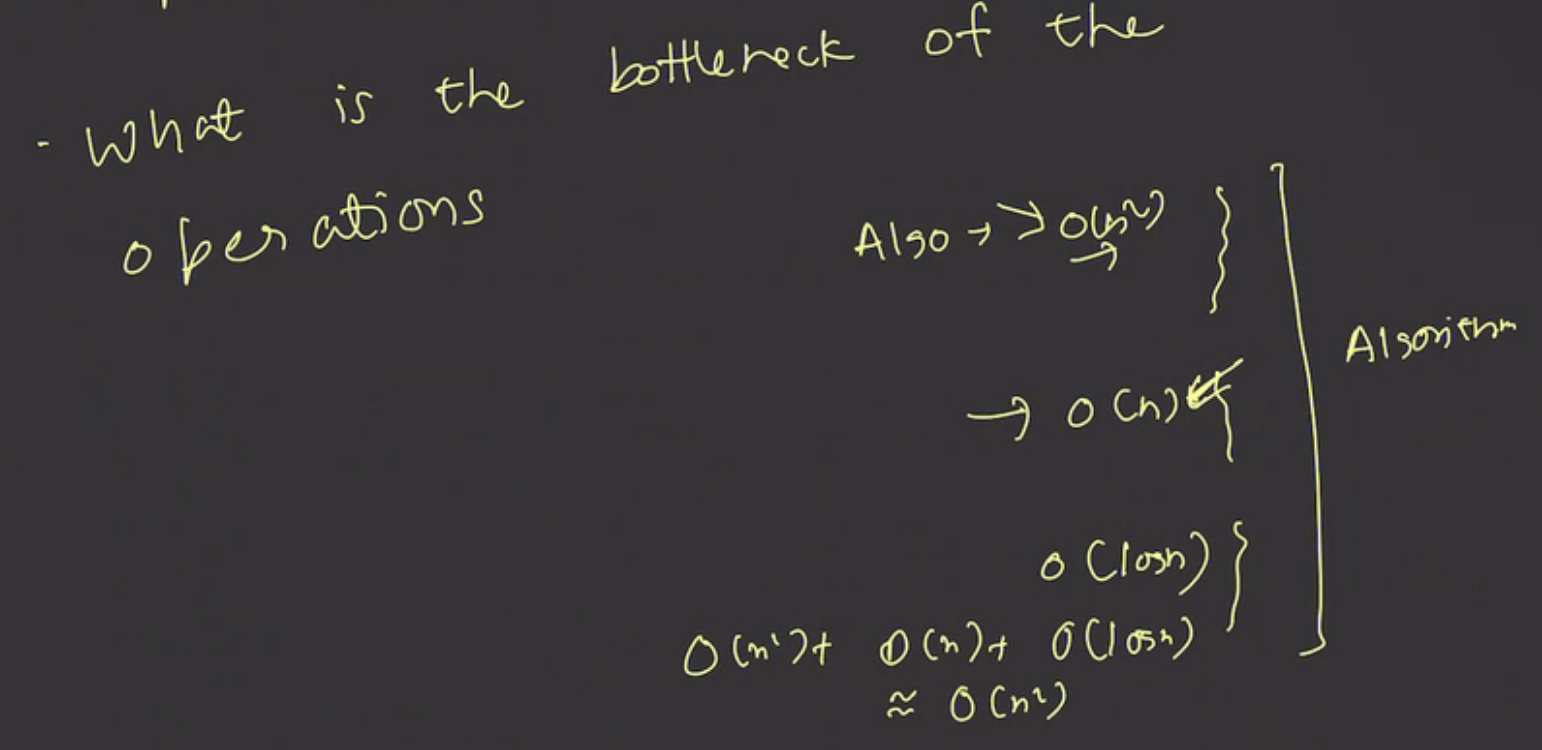 - What is the bottleneck of the
operations
Algo → → O(n²)
Algorithm
→ O(n)
O(logn)
O(n²)+ O(n)+ O(logn)
≈ O(n²)